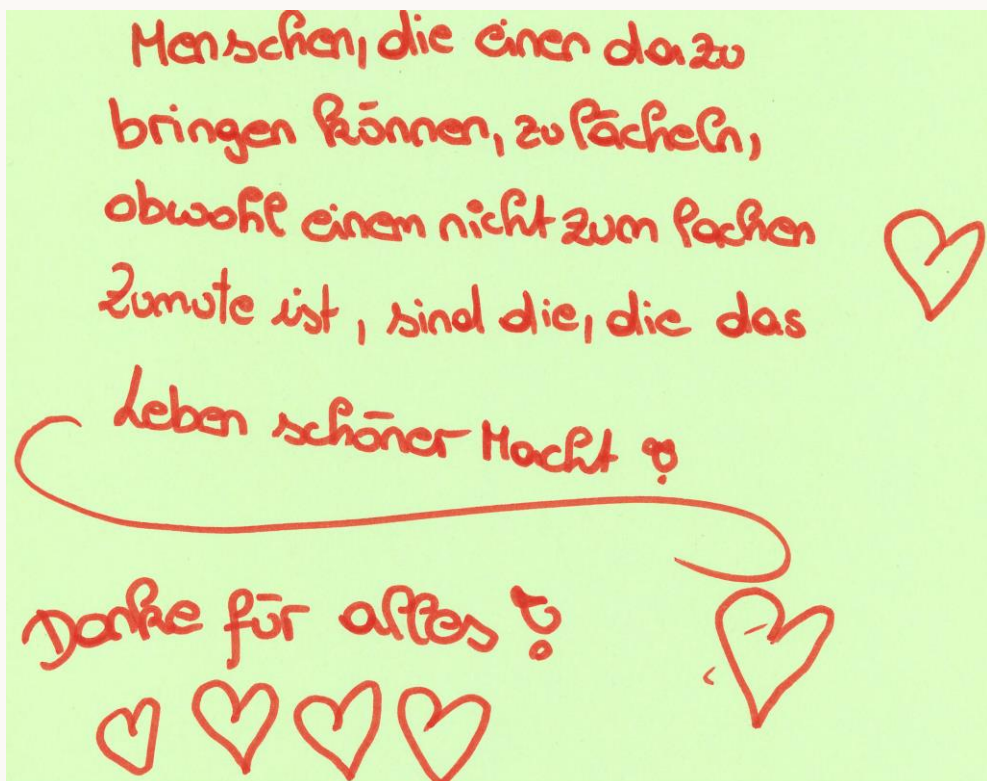 Menschen, die einen dazu
bringen können, zu lächeln,
obwohl einem nicht zum lachen
Zumute ist, sind die, die das
Leben schöner Macht !
Danke für alles !